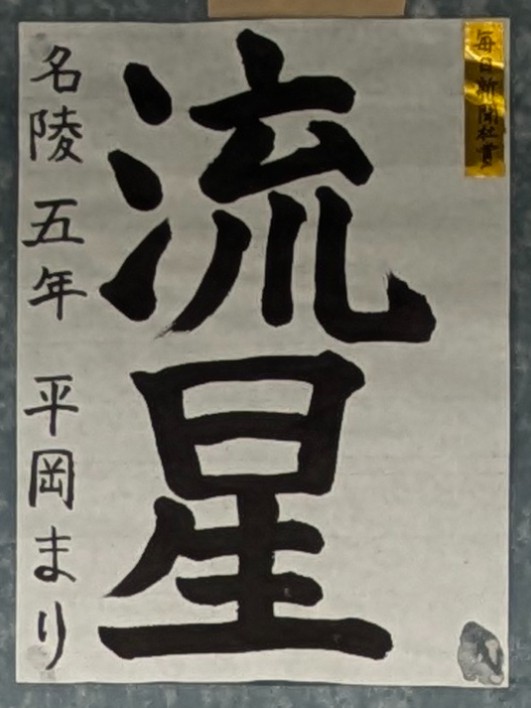 毎日新聞社賞
流星
名陵 五年 平岡まり